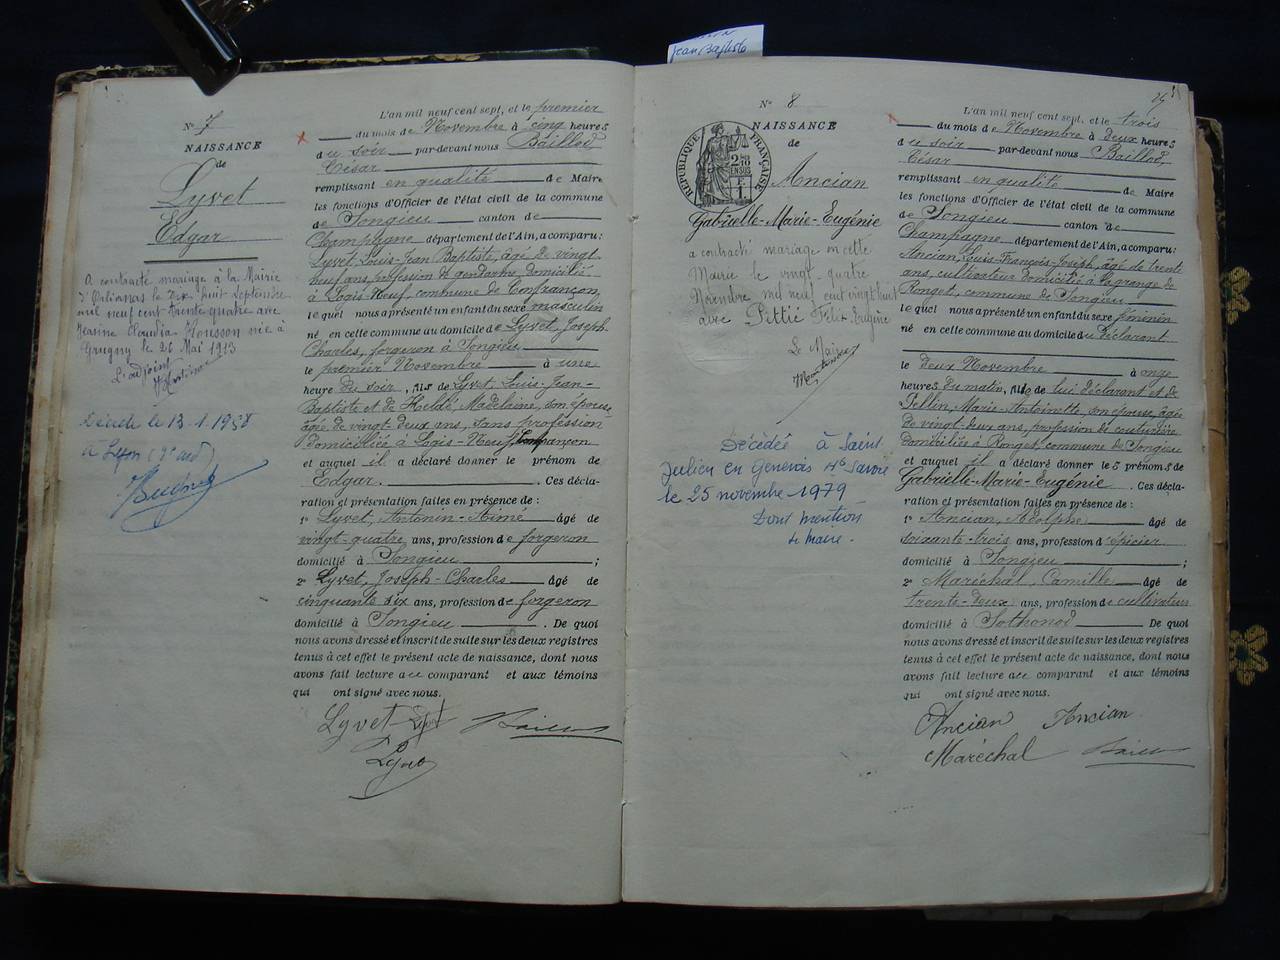 Jean Baptiste
N° 7
NAISSANCE
de
Lyvet
Edgar
A contracté mariage à la Mairie
d'Orliénas le dix huit Septembre
mil neuf cent trente quatre avec
Jeanne Claudia née à
Grugny le 26 Mai 1913
L'adjoint
Décédé le 13-1-1958
à Lyon (3e ard)
L'an mil neuf cent sept, et le premier
du mois de Novembre à cinq heures
du soir par-devant nous Baillod
César
remplissant en qualité de Maire
les fonctions d'Officier de l'état civil de la commune
de Songieu canton de
Champagne département de l'Ain, a comparu :
Lyvet, Louis-Jean Baptiste, âgé de vingt-
neuf ans, profession de gendarme, domicilié
à Logis-Neuf, commune de Confrançon,
lequel nous a présenté un enfant du sexe masculin
né en cette commune au domicile de Lyvet, Joseph-
Charles, forgeron à Songieu
le premier Novembre à une
heure du soir, fils de Lyvet, Louis-Jean-
Baptiste et de Madeleine, son épouse
âgée de vingt-deux ans, sans profession
domiciliée à Logis-Neuf, Confrançon
et auquel il a déclaré donner le prénom de
Edgar. Ces décla-
ration et présentation faites en présence de :
1° Lyvet, Antonin-Aimé âgé de
vingt-quatre ans, profession de forgeron
domicilié à Songieu ;
2° Lyvet, Joseph-Charles âgé de
cinquante six ans, profession de forgeron
domicilié à Songieu. De quoi
nous avons dressé et inscrit de suite sur les deux registres
tenus à cet effet le présent acte de naissance, dont nous
avons fait lecture au comparant et aux témoins
qui ont signé avec nous.
Lyvet Lyvet
Lyvet
N° 8
NAISSANCE
de
RÉPUBLIQUE FRANÇAISE
Ancian
Gabrielle-Marie-Eugénie
a contracté mariage en cette
Mairie le vingt-quatre
Novembre mil neuf cent vingt huit
avec Pittié Félix Eugène
Le Maire
Décédée à Saint
Julien en Genevois Hte Savoie
le 25 novembre 1979
Dont mention
Le Maire.
L'an mil neuf cent sept, et le trois
du mois de Novembre à deux heures
du soir par-devant nous Baillod,
César
remplissant en qualité de Maire
les fonctions d'Officier de l'état civil de la commune
de Songieu canton de
Champagne département de l'Ain, a comparu :
Ancian, Louis-François-Joseph, âgé de trente
ans, cultivateur domicilié à la grange de
Ronget, commune de Songieu
lequel nous a présenté un enfant du sexe féminin
né en cette commune au domicile du déclarant
le deux Novembre à onze
heures du matin, fille de lui déclarant et de
Pellin, Marie-Antoinette, son épouse, âgée
de vingt-deux ans, profession de couturière
domiciliés à Ronget, commune de Songieu
et auquel il a déclaré donner les prénoms de
Gabrielle-Marie-Eugénie. Ces décla-
ration et présentation faites en présence de :
1° Ancian, Adolphe âgé de
soixante-trois ans, profession d'épicier
domicilié à Songieu ;
2° Maréchal, Camille âgé de
trente-deux ans, profession de cultivateur
domicilié à Sothonod. De quoi
nous avons dressé et inscrit de suite sur les deux registres
tenus à cet effet le présent acte de naissance, dont nous
avons fait lecture au comparant et aux témoins
qui ont signé avec nous.
Ancian Ancian
Maréchal